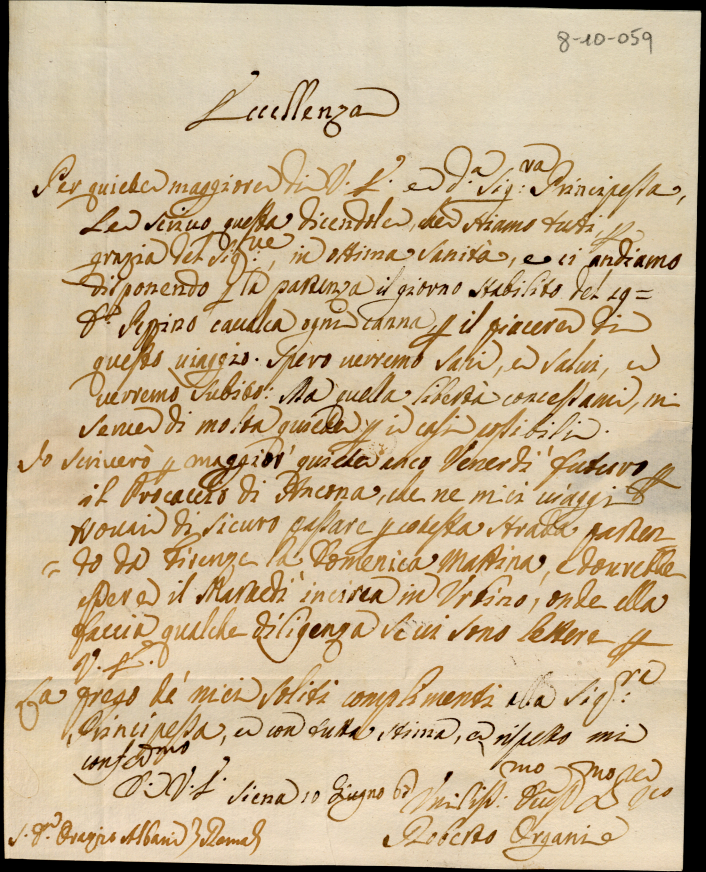 8-10-059
Eccellenza
Per quiete maggiore di V. E. e d.ª Sig.ra Principessa,
Le scrivo questa dicendole, che stiamo tutti, p
grazia del Sig.re, in ottima sanità, e ci andiamo
disponendo p la partenza il giorno stabilito del 19=
D. Peppino cavalca ogni canna p il piacere di
questo viaggio. Spero verremo sani, e salvi, e
verremo subito: Ma quella libertà concessami, mi
serve di molta quiete p i casi possibili.
Io scriverò p maggior quiete anco Venerdì futuro p
il Procaccio di Ancona, che ne miei viaggi
trovai di sicuro passare p cotesta strada parten
= do da Firenze la Domenica Mattina, e dovrebbe
essere il Martedì in circa in Urbino, onde ella
faccia qualche diligenza se vi sono lettere p
V. E.
La prego de' miei soliti complimenti alla Sig.ra
Principessa, e con tutta stima, e rispetto mi
confermo
D. V. E. Siena 10 Giugno
Umiliss.mo
Roberto Organi
S. D. Orazio Albani Roma